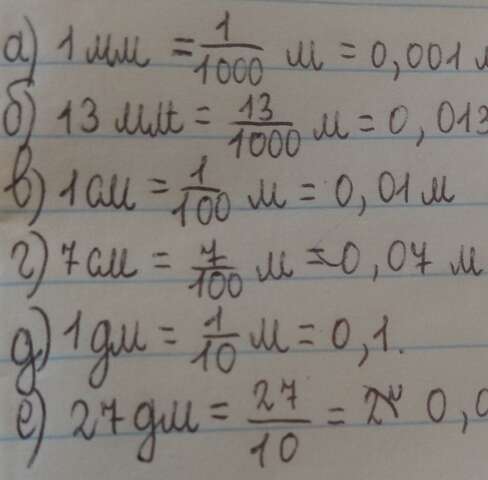 а) 1 мм = 1/1000 м = 0,001 м
б) 13 мм = 13/1000 м = 0,013
в) 1 см = 1/100 м = 0,01 м
г) 7 см = 7/100 м = 0,07 м
д) 1 дм = 1/10 м = 0,1.
е) 27 дм = 27/10 = 0,0